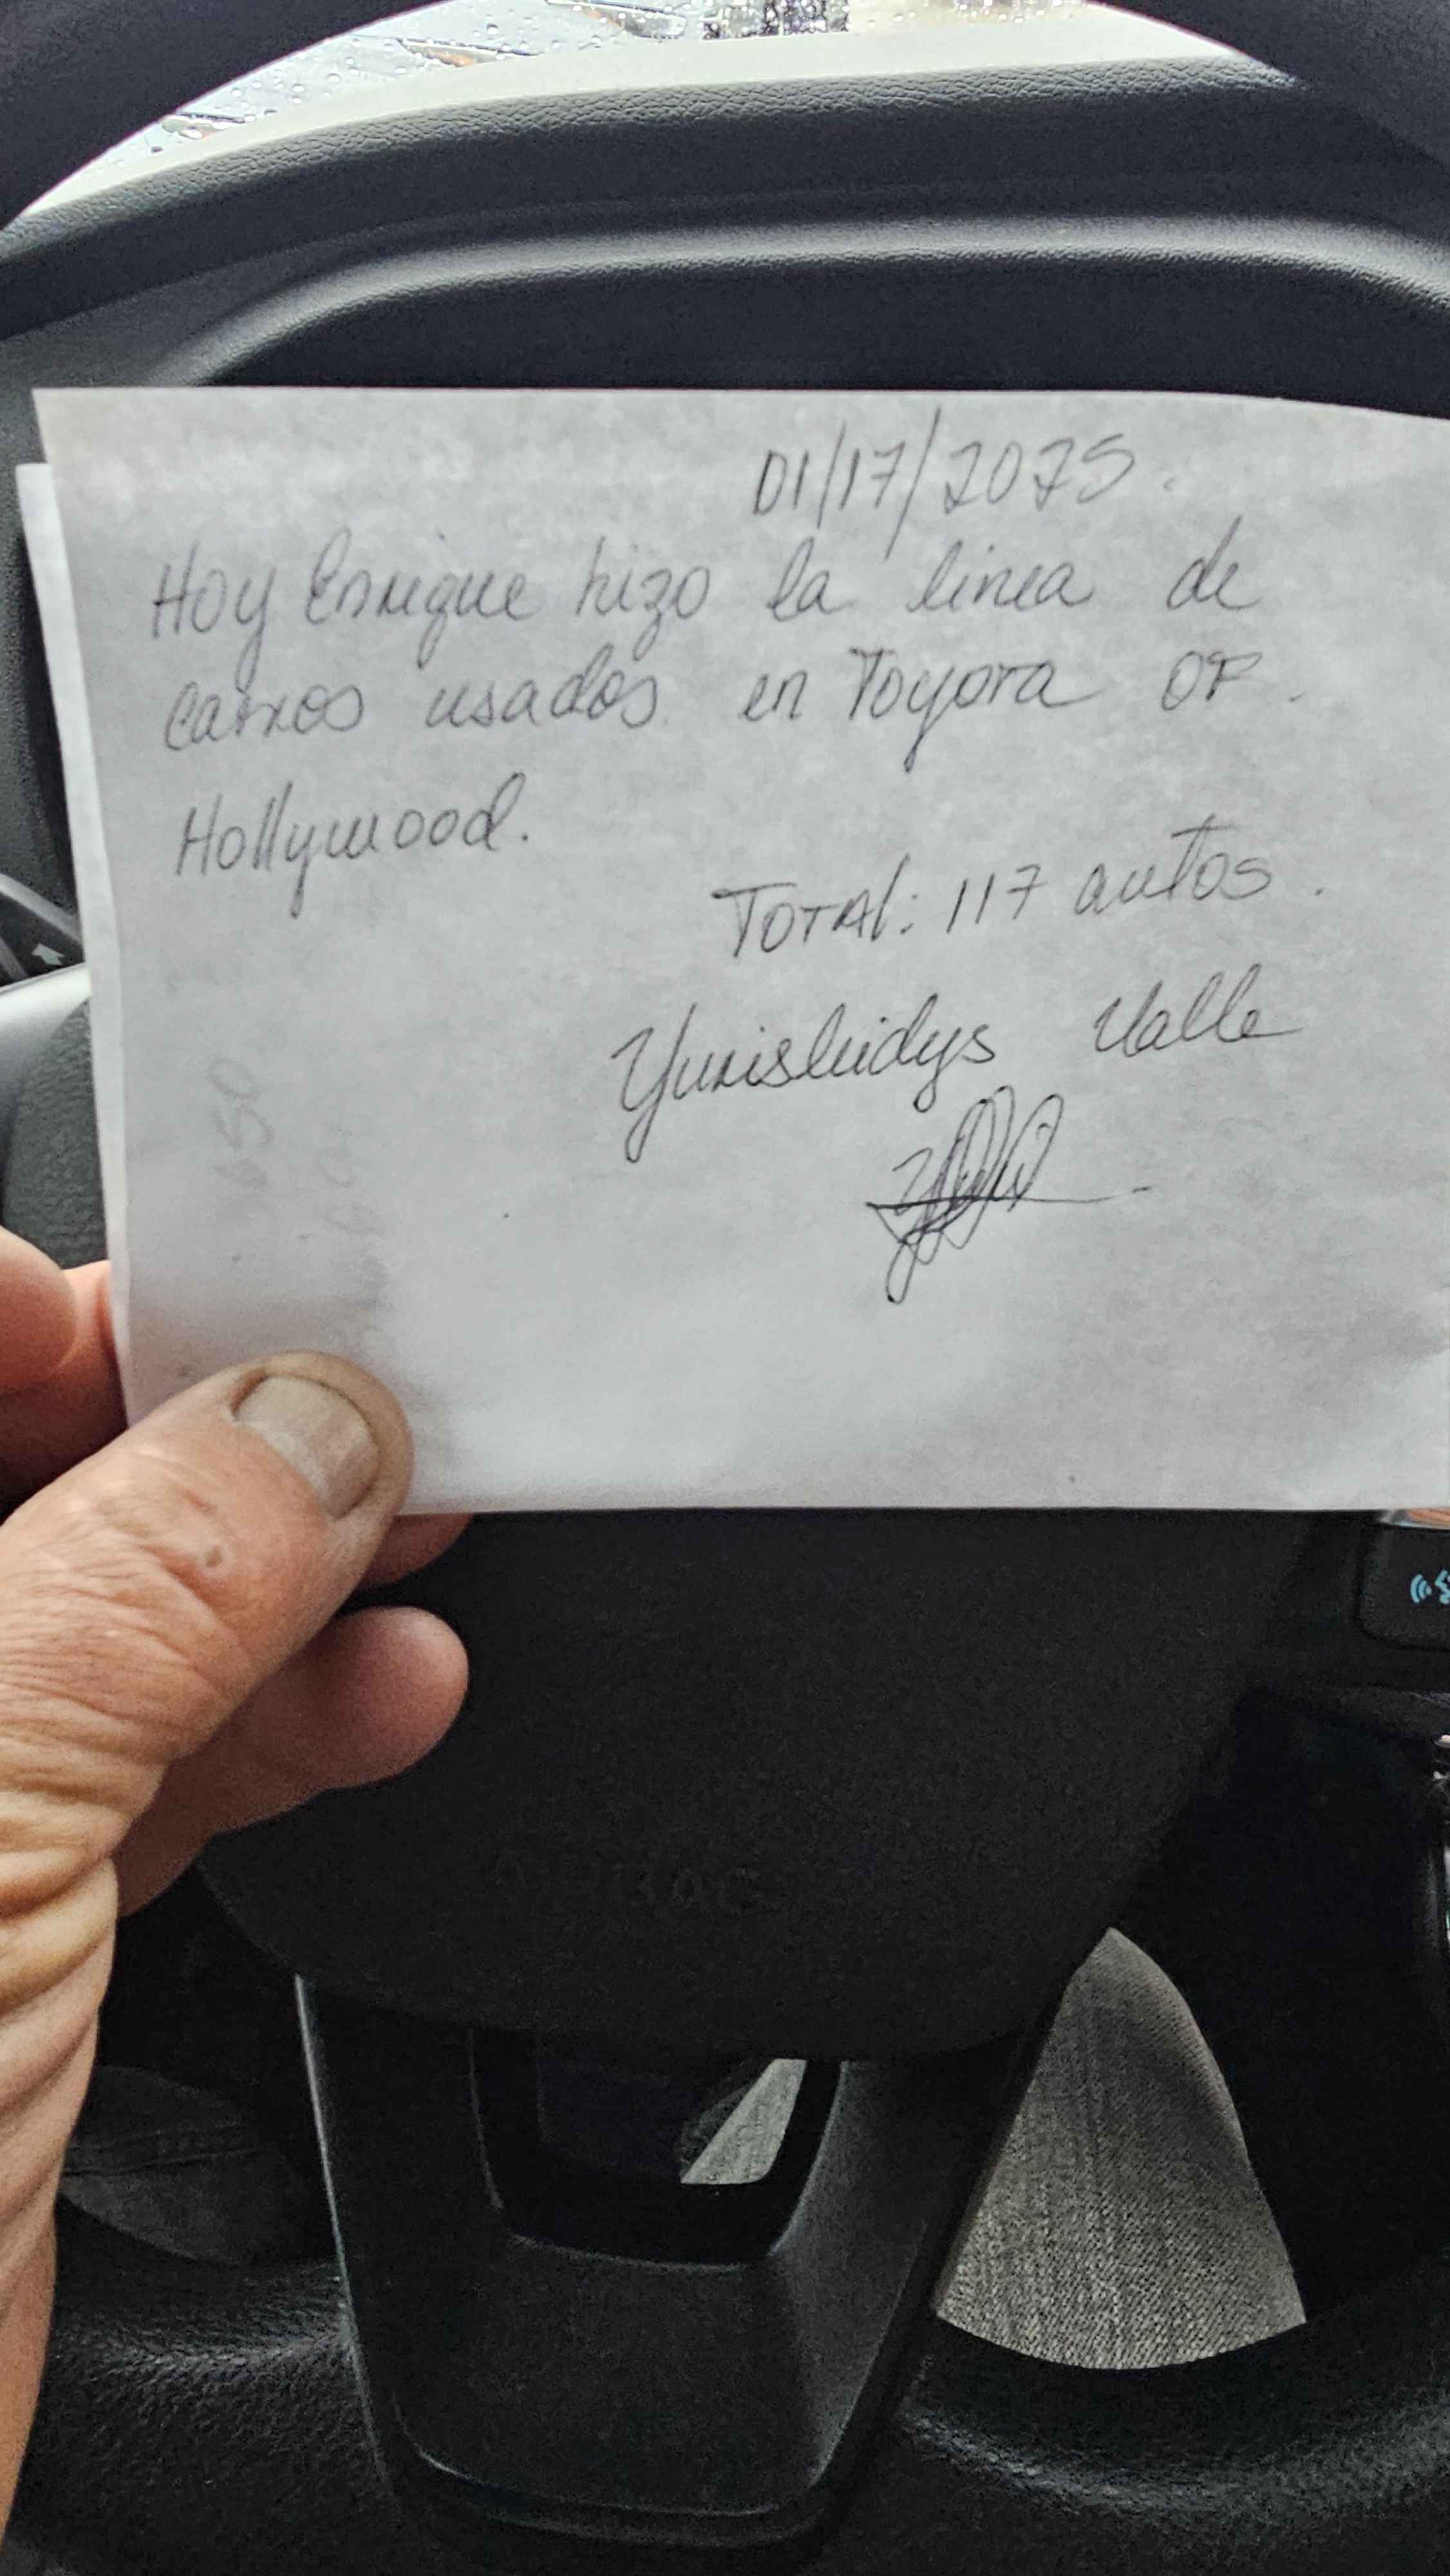 01/17/2025.
Hoy Enrique hizo la linea de
carros usados en Toyota OF.
Hollywood.
TOTAL: 117 autos.
Yurisleidys Valle
650
AIRBAG